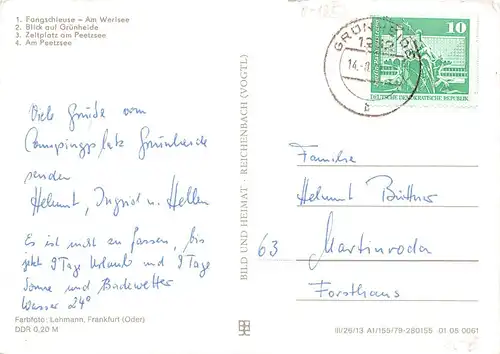 1. Fangschleuse – Am Werlsee
2. Blick auf Grünheide
3. Zeltplatz am Peetzsee
4. Am Peetzsee
Viele Grüße vom
Campingplatz Grünheide
senden
Helmut, Ingrid u. Hellen
Es ist nicht zu fassen, bis
jetzt 9 Tage Urlaub und 9 Tage
Sonne und Badewetter
Wasser 24°
Farbfoto: Lehmann, Frankfurt (Oder)
DDR 0,20 M
BILD UND HEIMAT · REICHENBACH (VOGTL)
GRÜNHEIDE
1252
14.-8
b
10
DEUTSCHE DEMOKRATISCHE REPUBLIK
Familie
Helmut Büttner
63 Martinroda
Forsthaus
III/26/13 A1/155/79-280155 01 05 0061